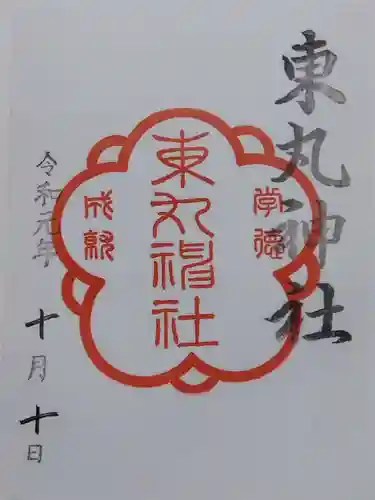 東丸神社
学徳
東丸神社
成就
令和元年
十月十日